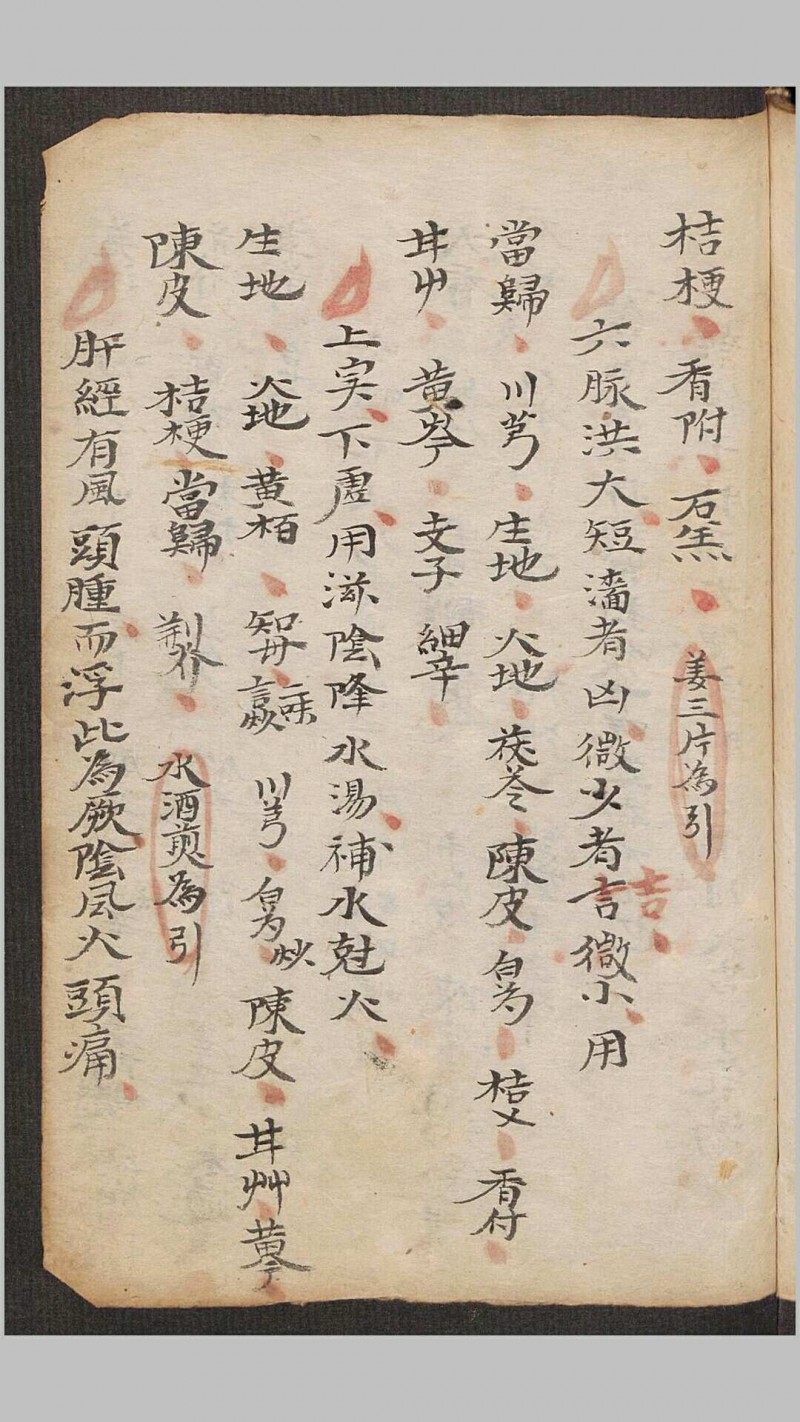 桔梗 香附 石羔 姜三片為引
六脉洪大短濇者凶微少者言吉微小用
當歸 川芎 生地 火地 茯苓 陳皮 白芍 桔又 香付
甘艸 黄芩 支子 細辛
上实下虚用滋陰降水湯補水尅火
生地 火地 黄栢 知母 二味 川芎 白芍炒 陳皮 甘艸 黄芩
陳皮 桔梗 當歸 荆芥 水酒煎為引
肝經有風頭腫而浮此為厥陰風火頭痛